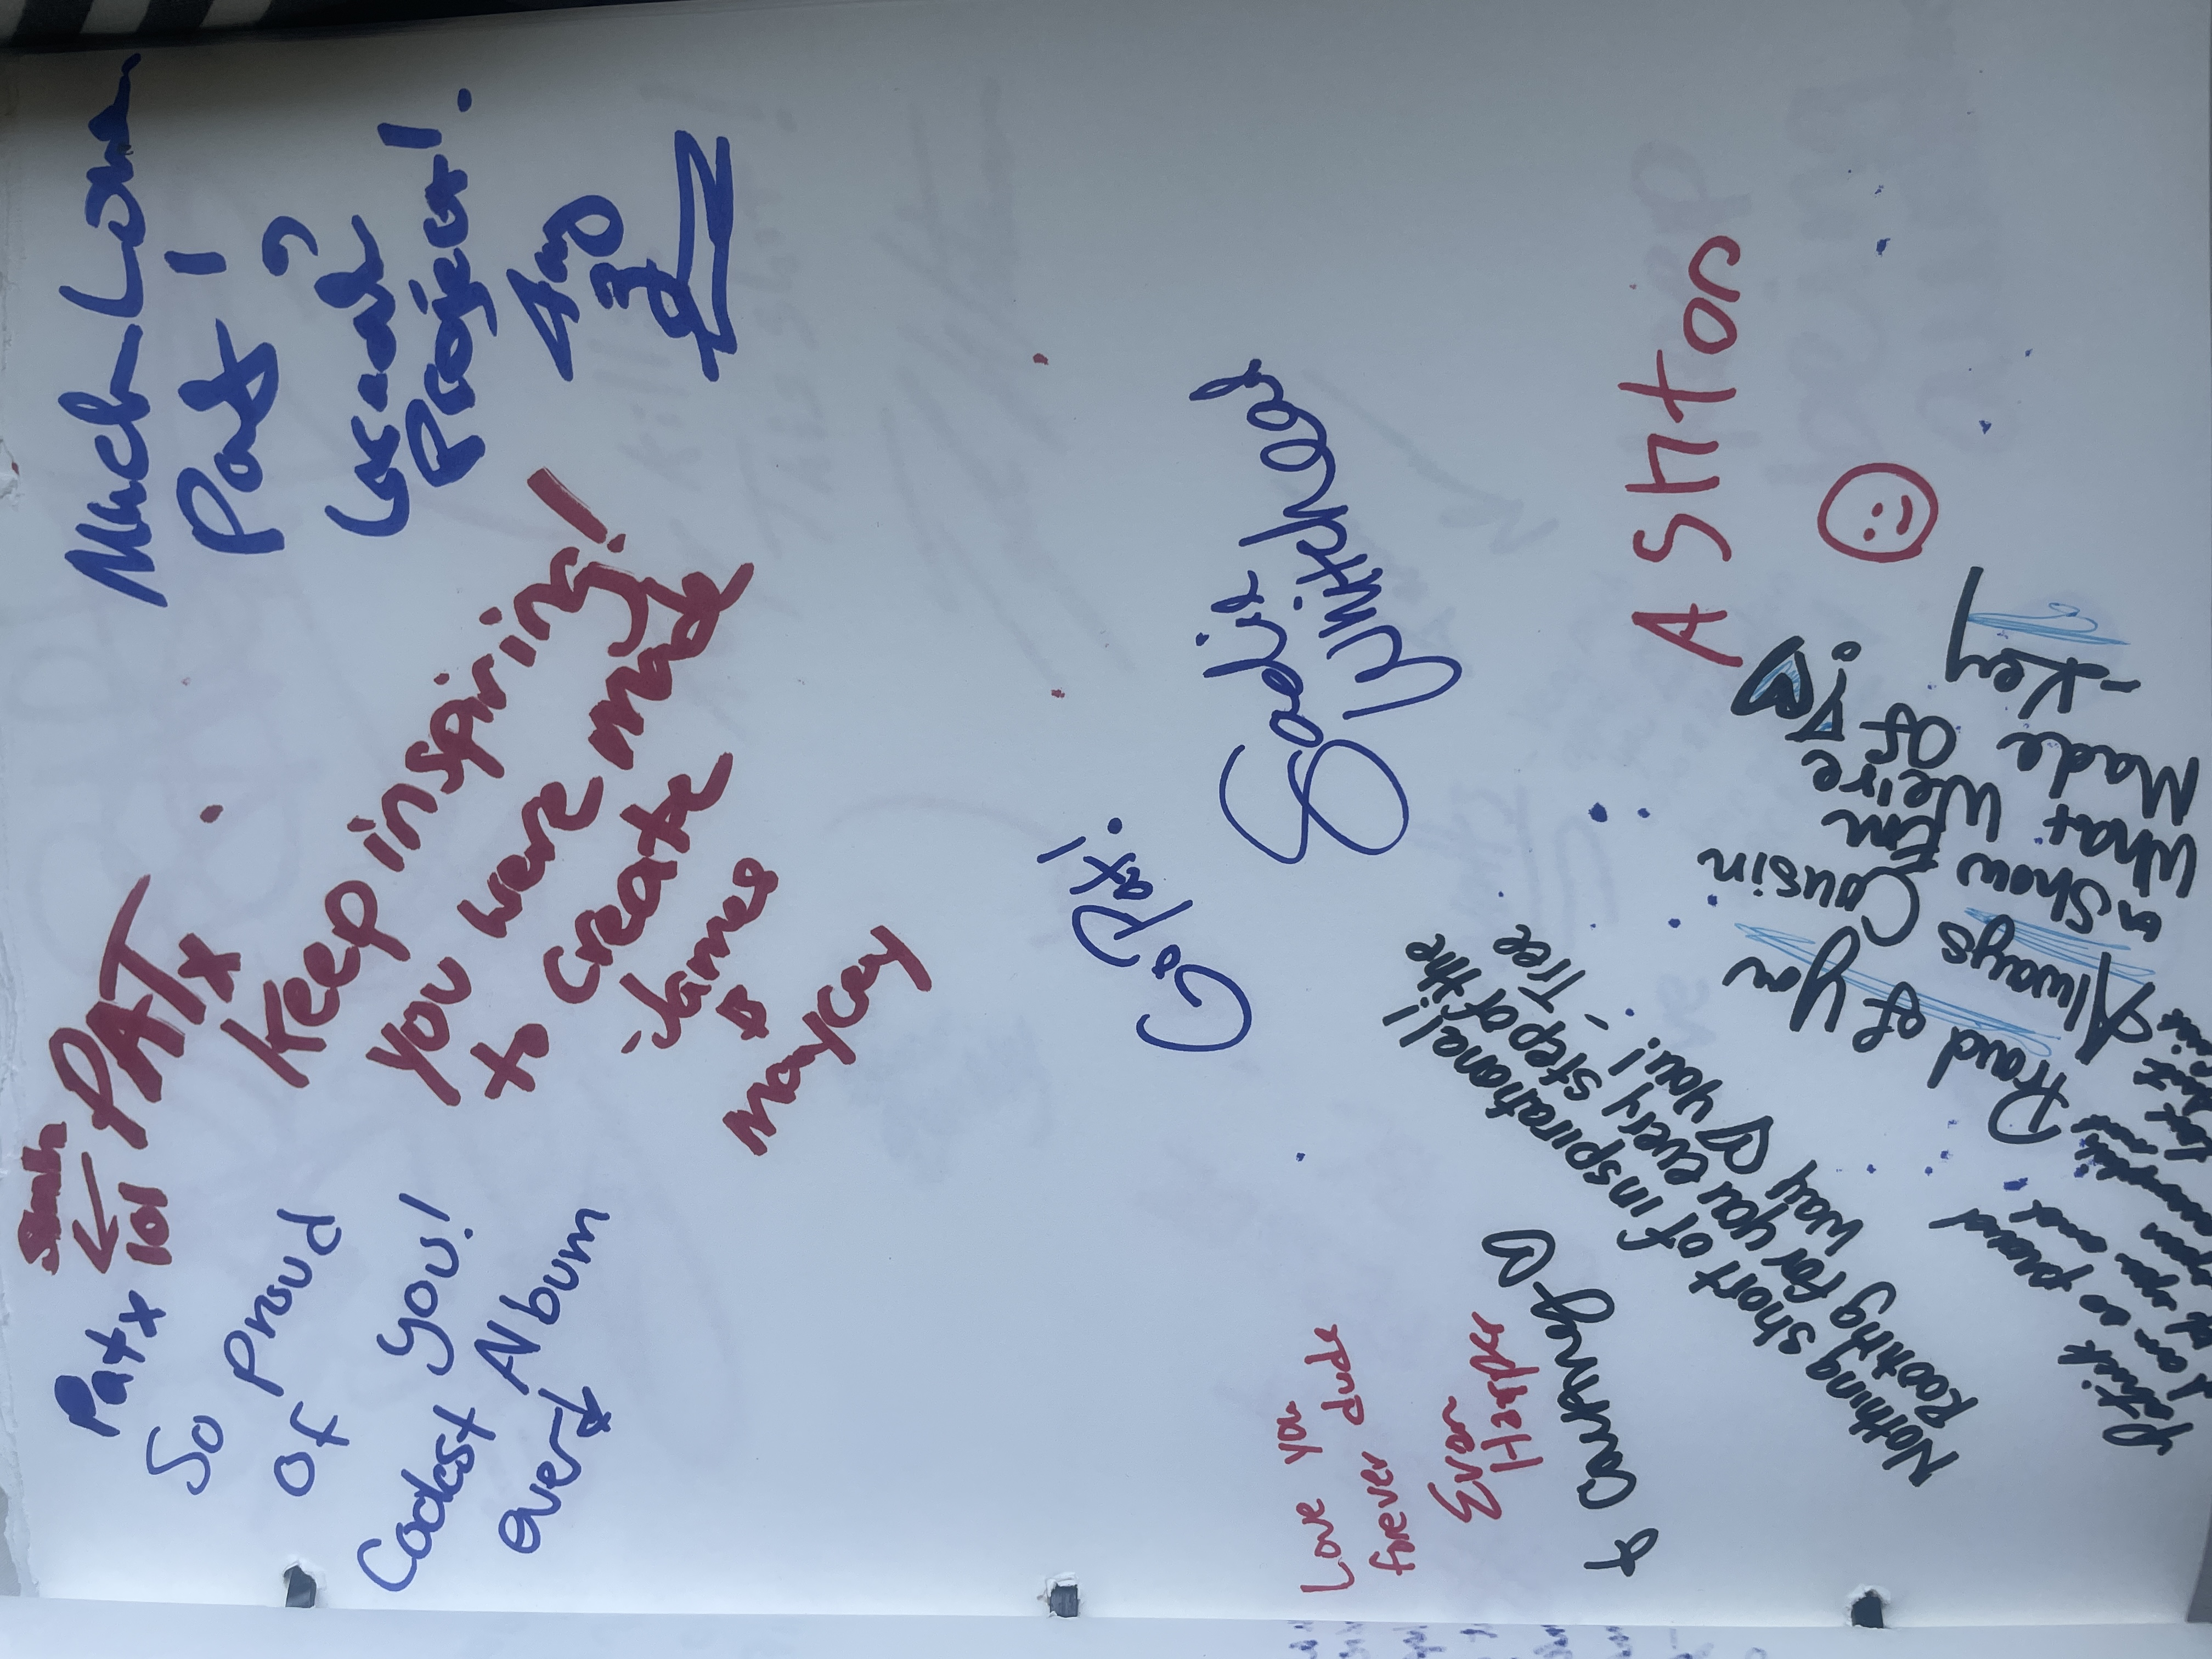 Much Love
Pat!
Project!
Smah
PATx
lol
Keep inspiring!
You were made
to create
James
&
Maycey
Patx
So Proud
of you!
Coolest Album
ever
Go Pat!
Sadie
Whitehead
Ashton
Love you
forever dude
Evan
Harper
& Courtney
Nothing short of inspirational!
Rooting for you every step of the
way ♡ you! -Tree
Proud of you
Cousin
Always
Show Em
What We're
Made Of
-Key
Patrick
I am so proud
of you and